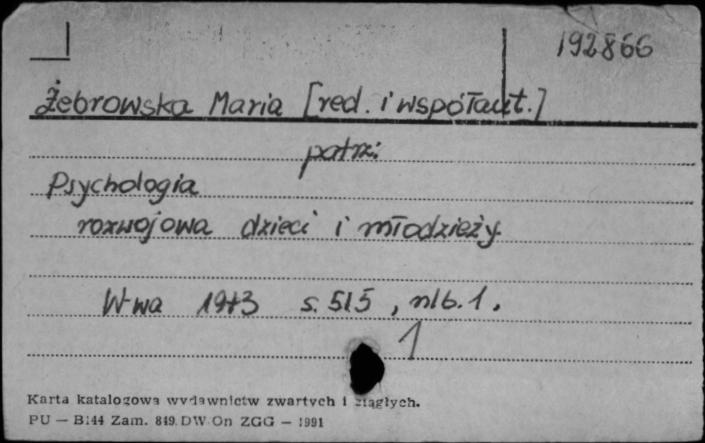 192866
Żebrowska Maria [red. i współaut.]
patrz:
Psychologia
rozwojowa dzieci i młodzieży
W-wa 1973 s. 515, nlb. 1.
1
Karta katalogowa wydawnictw zwartych i ciągłych.
PU — B144 Zam. 849 DW On ZGG — 1991